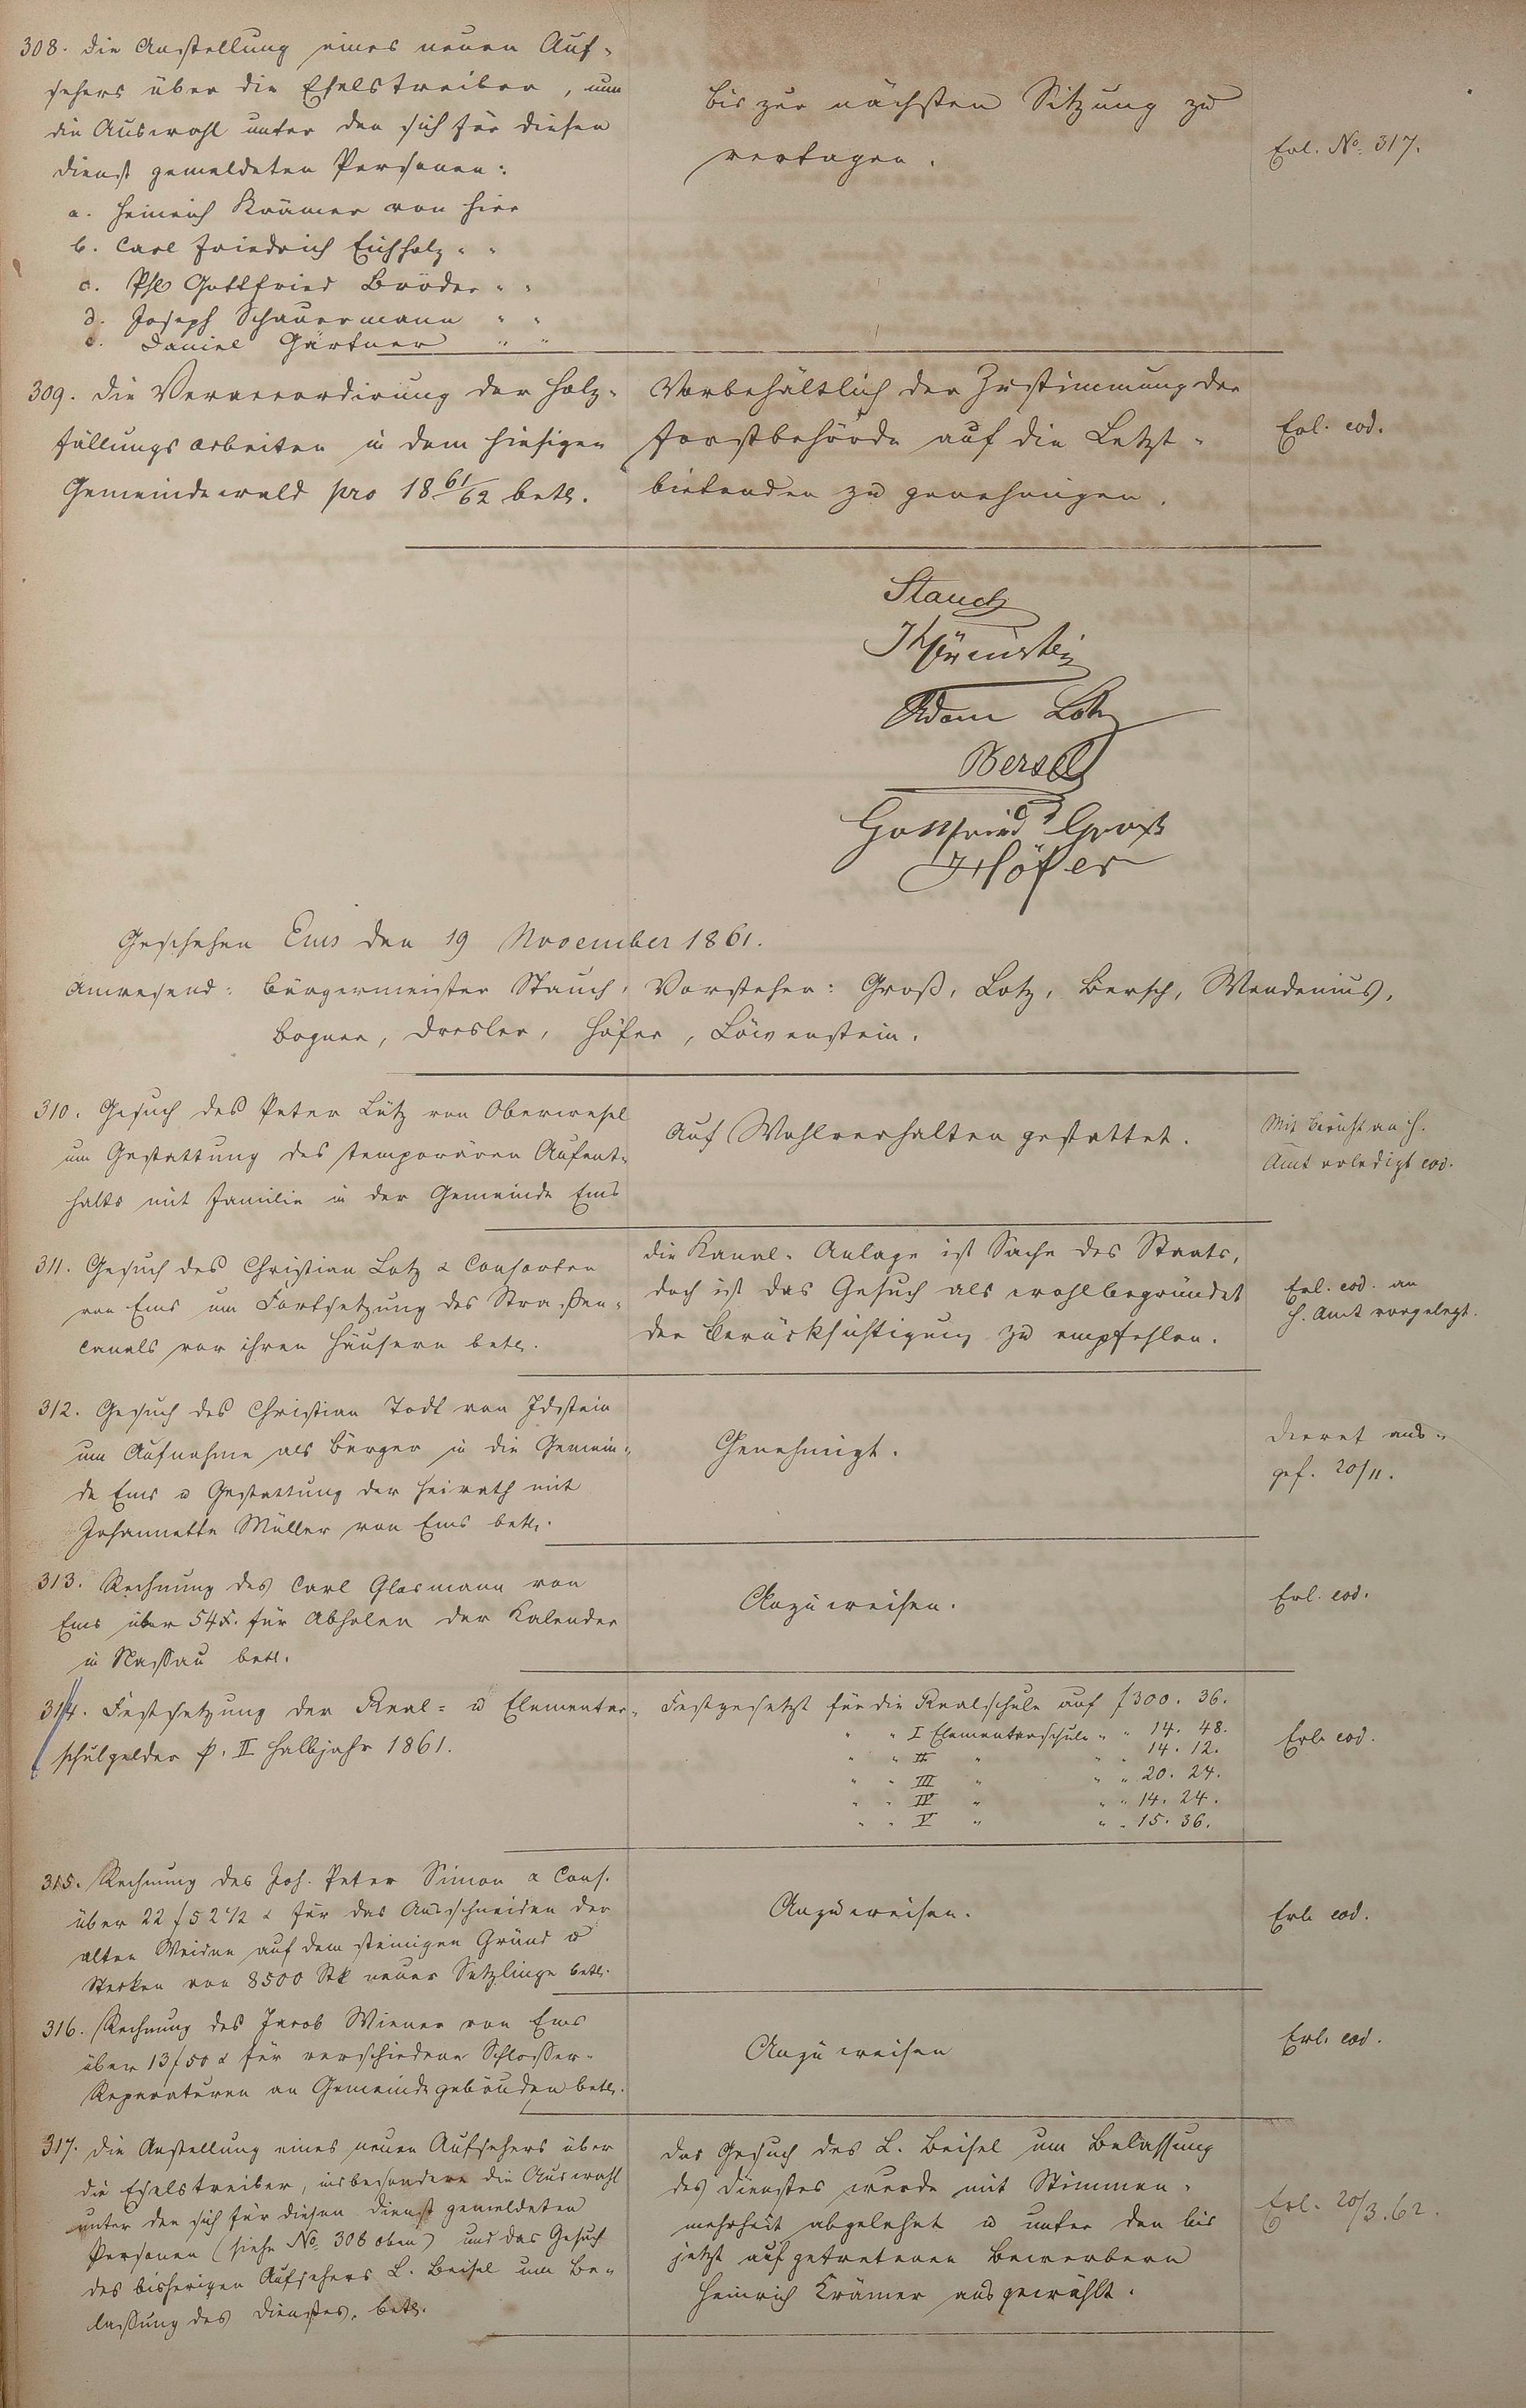 308. Die Anstellung eines neuen Auf-
sehers über die Eselstreiber, nun
die Auswahl unter den sich für diesen
Dienst gemeldeten Personen:
a. Heinrich Krämer von hier
b. Carl Friedrich Eichholz " "
c. Phil Gottfried Bröder " "
d. Joseph Schauermann " "
e. Daniel Gärtner " "
bis zur nächsten Sitzung zu
vertagen.
Erl. No. 317.
309. Die Veraccordirung der Holz-
fällungsarbeiten in dem hiesigen
Gemeindewald pro 18 61/62 betr.
Vorbehältlich der Zustimmung der
Forstbehörde auf die Letzt-
bietenden zu genehmigen.
Erl. eod.
Stauch
Adam Lotz
Bersch
Gottfried Groß
Höfer
Geschehen Ems den 19 November 1861.
Anwesend: Bürgermeister Stauch, Vorsteher: Groß, Lotz, Bersch, Wendenius,
Bogner, Dresler, Höfer, Löwenstein.
310. Gesuch des Peter Lütz von Oberwesel
um Gestattung des temporären Aufent-
halts mit Familie in der Gemeinde Ems
Auf Wohlverhalten gestattet.
Mit Bericht an H.
Amt erledigt eod.
311. Gesuch des Christian Lotz & Consorten
von Ems um Fortsetzung des Straßen-
canals vor ihren Häusern betr.
Die Kanal-Anlage ist Sache des Staats,
doch ist das Gesuch als wohlbegründet
der Berücksichtigung zu empfehlen.
Erl. eod. an
H. Amt vorgelegt.
312. Gesuch des Christian Todt von Idstein
um Aufnahme als Bürger in die Gemein-
de Ems u Gestattung der Heirath mit
Johannette Müller von Ems betr.
Genehmigt.
Decret aus-
gef. 20/11.
313. Rechnung des Carl Glasmann von
Ems über 54 x. für Abholen der Kalender
in Nassau betr.
Anzuweisen.
Erl. eod.
314. Festsetzung der Real- u Elementar-
schulgelder p. II Halbjahr 1861.
Festgesetzt für die Realschule auf f 300. 36.
" " I Elementarschule " " 14. 48.
" " II " " " 14. 12.
" " III " " " 20. 24.
" " IV " " " 14. 24.
" " V " " " 15. 36.
Erl. eod.
315. Rechnung des Joh. Peter Simon & Cons.
über 22 f 52 1/2 x für das Ausschneiden der
alten Weiden auf dem steinigen Gründ u
Stecken von 8500 Stk neuer Setzlinge betr.
Anzuweisen.
Erl. eod.
316. Rechnung des Jacob Wiener von Ems
über 13 f 50 x für verschiedene Schlosser-
Reparaturen an Gemeindegebäuden betr.
Anzuweisen
Erl. eod.
317. Die Anstellung eines neuen Aufsehers über
die Eselstreiber, insbesondere die Auswahl
unter den sich für diesen Dienst gemeldeten
Personen (siehe No. 308 oben) und das Gesuch
des bisherigen Aufsehers L. Beisel um Be-
lassung des Dienstes, betr.
Das Gesuch des L. Beisel um Belassung
des Dienstes wurde mit Stimmen-
mehrheit abgelehnt u unter den bis
jetzt aufgetretenen Bewerbern
Heinrich Krämer ausgewählt.
Erl. 20/3.62.